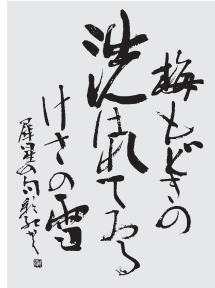 梅もどきの
洗はれてゐる
けさの雪
犀星の句